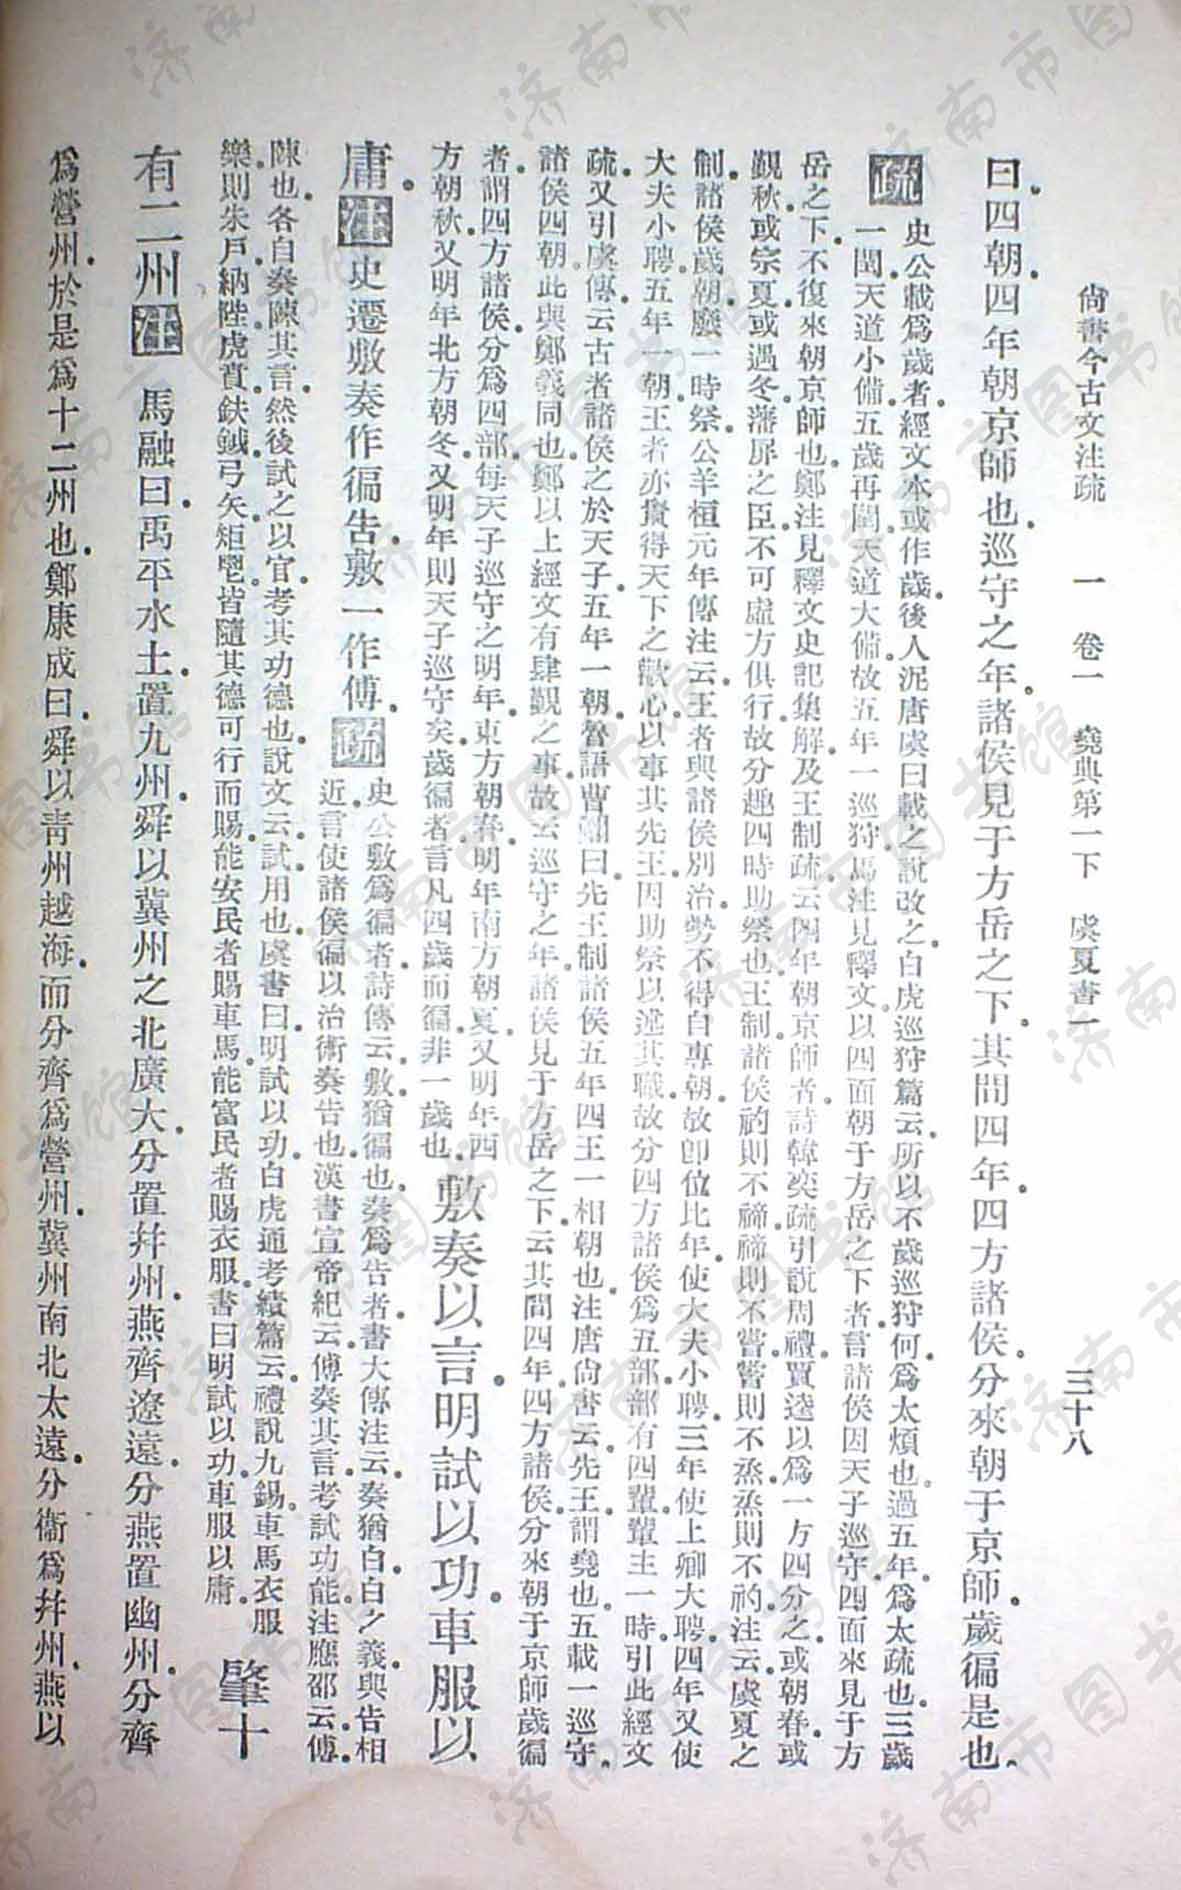 尙書今古文注疏　一　卷一　堯典第一下　虞夏書一　三十八
曰四朝四年朝京師也巡守之年諸侯見于方岳之下其間四年四方諸侯分來朝于京師歲徧是也
疏 史公載爲歲者經文本或作歲後人泥唐虞曰載之說改之白虎巡狩篇云所以不歲巡狩何爲太煩也過五年爲太疏也三歲
一閏天道小備五歲再閏天道大備故五年一巡狩馬注見釋文以四面朝于方岳之下者言諸侯因天子巡守四面來見于方
岳之下不復來朝京師也鄭注見釋文史記集解及王制疏云四年朝京師者詩韓奕疏引說周禮賈逵以爲一方四分之或朝春或
覲秋或宗夏或遇冬藩屛之臣不可虛方俱行故分趣四時助祭也王制諸侯礿則不禘禘則不嘗嘗則不烝烝則不礿注云虞夏之
制諸侯歲朝廢一時祭公羊桓元年傳注云王者與諸侯別治勢不得自專朝故卽位比年使大夫小聘三年使上卿大聘四年又使
大夫小聘五年一朝王者亦貴得天下之歡心以事其先王因助祭以述其職故分四方諸侯爲五部部有四輩輩主一時引此經文
疏又引虞傳云古者諸侯之於天子五年一朝魯語曹翽曰先王制諸侯五年四王一相朝也注唐尙書云先王謂堯也五載一巡守
諸侯四朝此與鄭義同也鄭以上經文有肆覲之事故云巡守之年諸侯見于方岳之下云其間四年四方諸侯分來朝于京師歲徧
者謂四方諸侯分爲四部每天子巡守之明年東方朝春明年南方朝夏又明年西
方朝秋又明年北方朝冬又明年則天子巡守矣歲徧者言凡四歲而徧非一歲也 敷奏以言明試以功車服以
庸 注 史遷敷奏作徧告敷一作傅 疏 史公敷爲徧者詩傳云敷猶徧也奏爲告者書大傳注云奏猶白白之義與告相
近言使諸侯徧以治術奏告也漢書宣帝紀云傅奏其言考試功能注應邵云傅
陳也各自奏陳其言然後試之以官考其功德也說文云試用也虞書曰明試以功白虎通考績篇云禮說九錫車馬衣服
樂則朱戶納陛虎賁鈇鉞弓矢秬鬯皆隨其德可行而賜能安民者賜車馬能富民者賜衣服書曰明試以功車服以庸 肇十
有二州 注 馬融曰禹平水土置九州舜以冀州之北廣大分置幷州燕齊遼遠分燕置幽州分齊
爲營州於是爲十二州也鄭康成曰舜以青州越海而分齊爲營州冀州南北太遠分衞爲幷州燕以